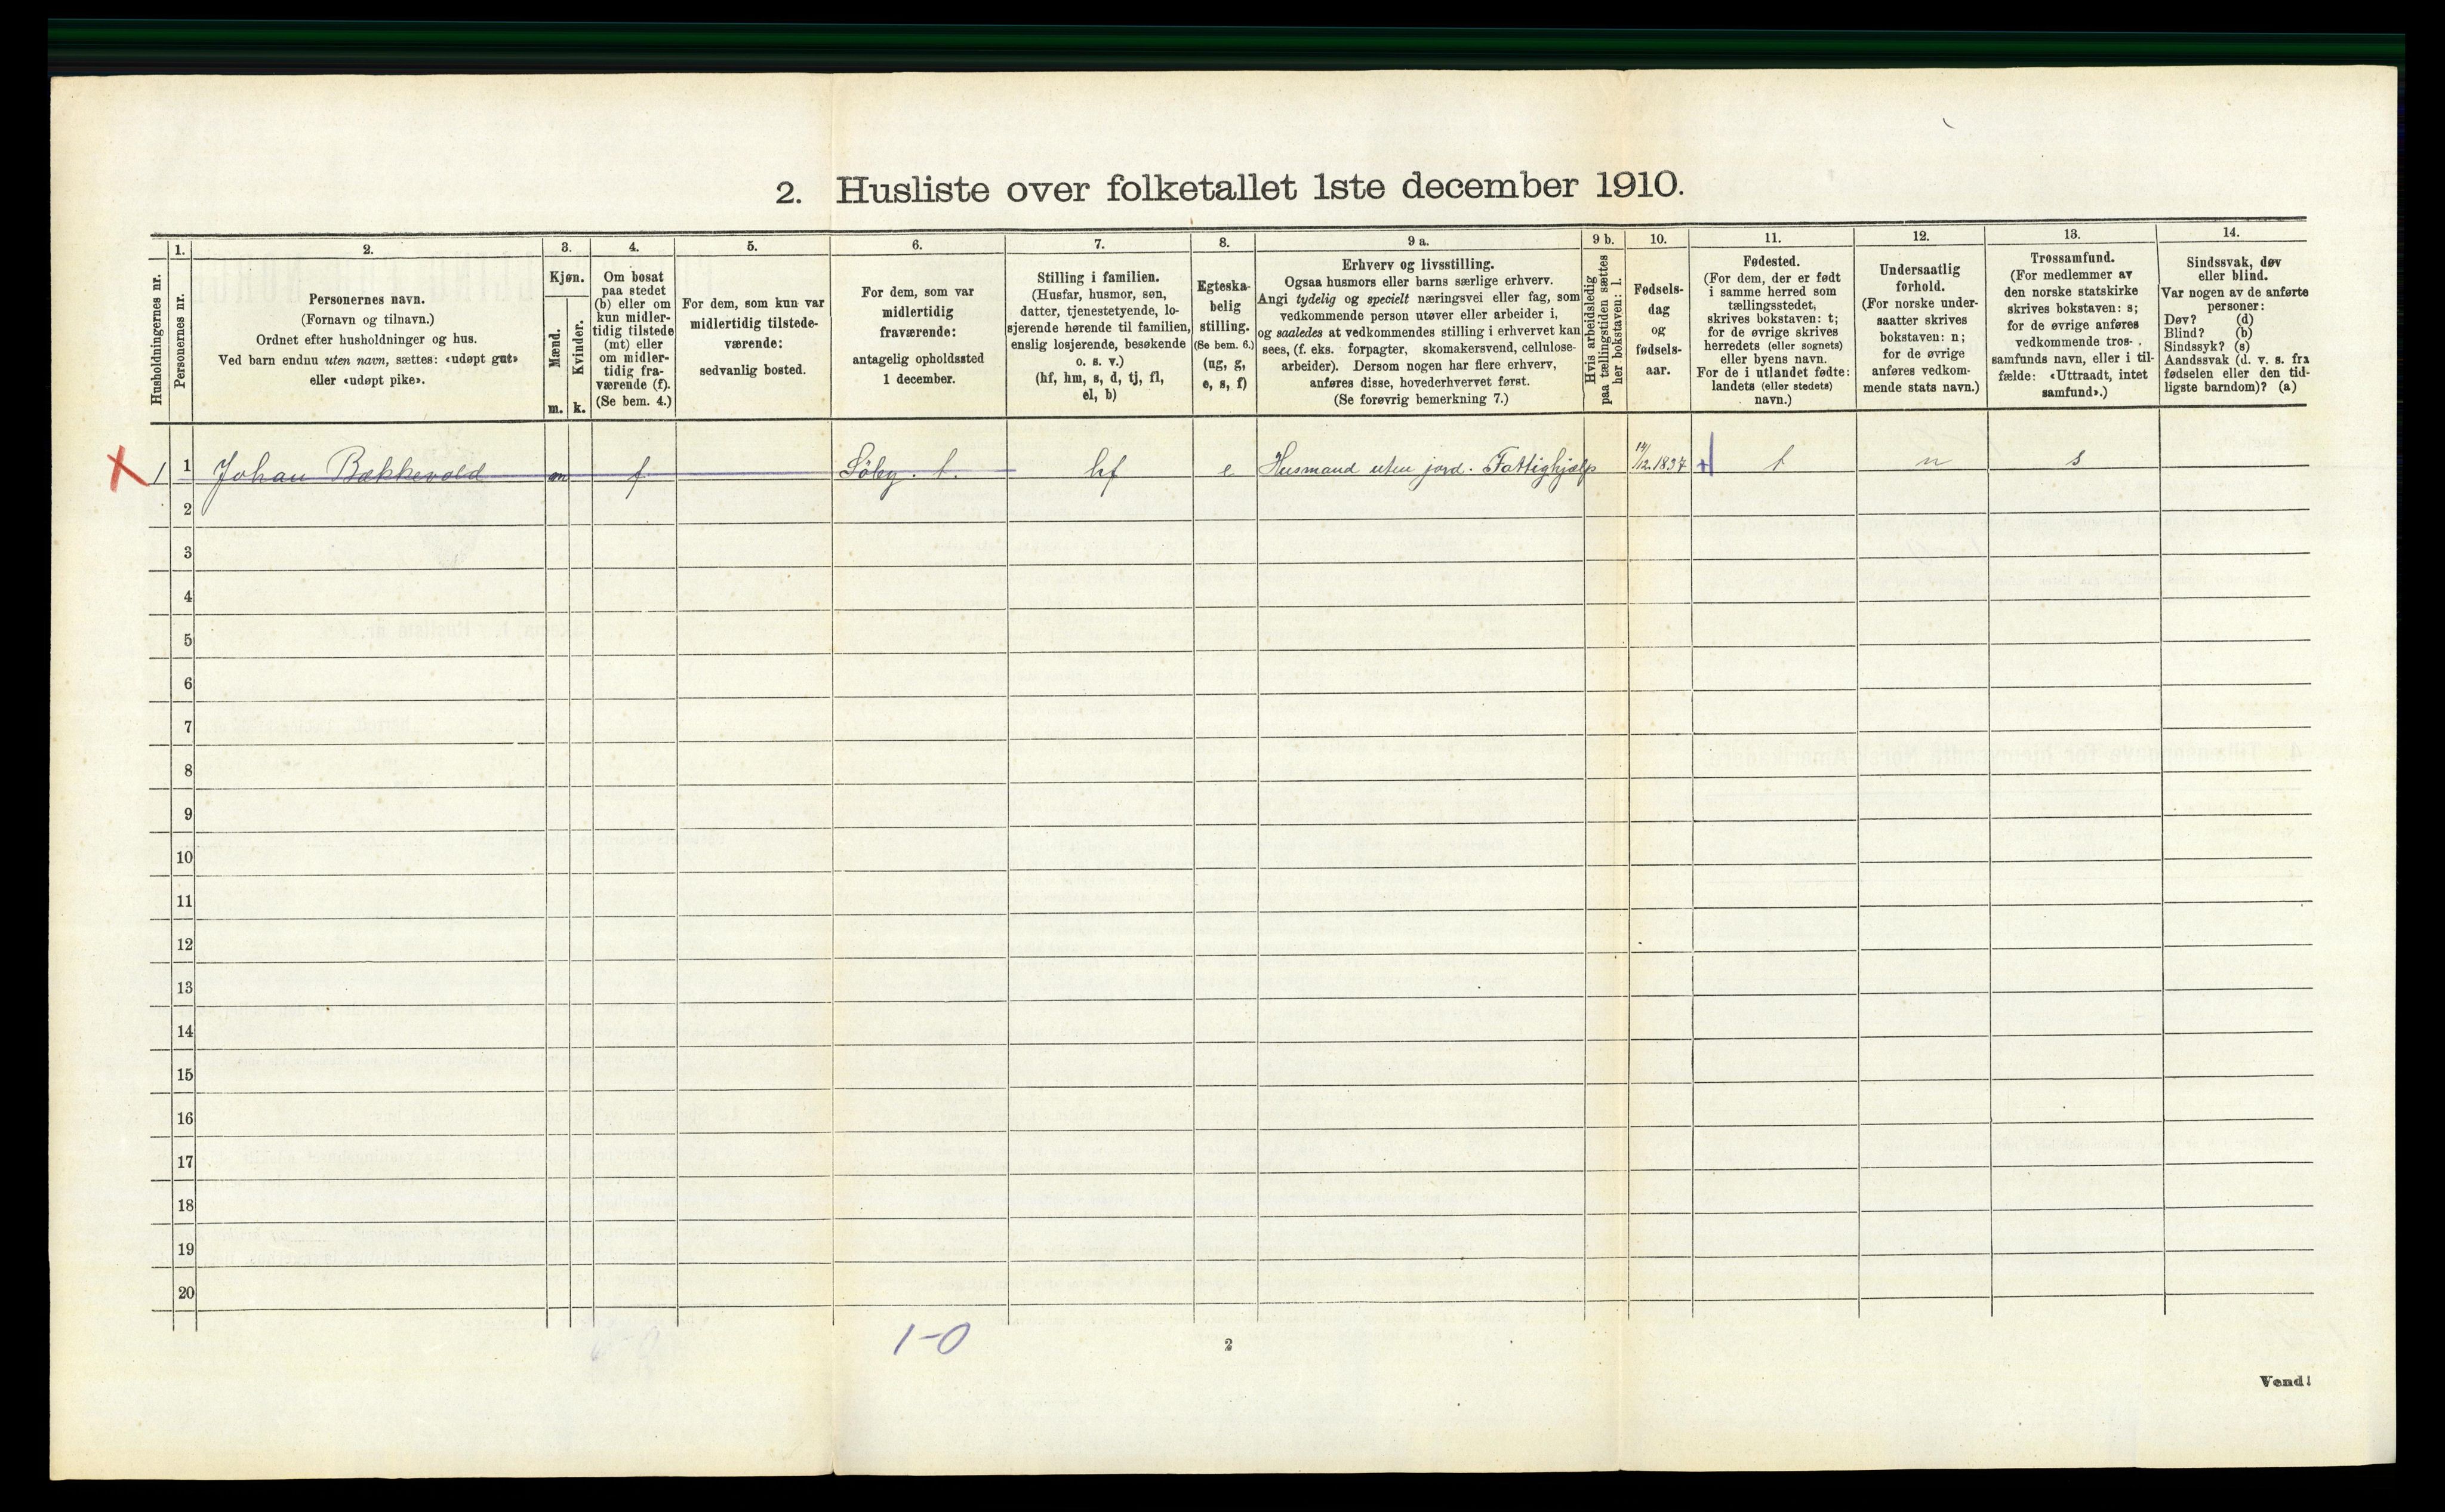 2. Husliste over folketallet 1ste december 1910.
Husholdningernes nr.
1.
Personernes nr.
2.
Personernes navn.
(Fornavn og tilnavn.)
Ordnet efter husholdninger og hus.
Ved barn endnu uten navn, sættes: «udøpt gut»
eller «udøpt pike».
3.
Kjøn.
Mænd.
Kvinder.
m. k.
4.
Om bosat
paa stedet
(b) eller om
kun midler-
tidig tilstede
(mt) eller
om midler-
tidig fra-
værende (f).
(Se bem. 4.)
5.
For dem, som kun var
midlertidig tilstede-
værende:
sedvanlig bosted.
6.
For dem, som var
midlertidig
fraværende:
antagelig opholdssted
1 december.
7.
Stilling i familien.
(Husfar, husmor, søn,
datter, tjenestetyende, lo-
sjerende hørende til familien,
enslig losjerende, besøkende
o. s. v.)
(hf, hm, s, d, tj, fl,
el, b)
8.
Egteska-
belig
stilling.
(Se bem. 6.)
(ug, g,
e, s, f)
9 a.
Erhverv og livsstilling.
Ogsaa husmors eller barns særlige erhverv.
Angi tydelig og specielt næringsvei eller fag, som
vedkommende person utøver eller arbeider i,
og saaledes at vedkommendes stilling i erhvervet kan
sees, (f. eks. forpagter, skomakersvend, cellulose-
arbeider). Dersom nogen har flere erhverv,
anføres disse, hovederhvervet først.
(Se forøvrig bemerkning 7.)
9 b.
Hvis arbeidsledig
paa tællingstiden sættes
her bokstaven: l.
10.
Fødsels-
dag
og
fødsels-
aar.
11.
Fødested.
(For dem, der er født
i samme herred som
tællingsstedet,
skrives bokstaven: t;
for de øvrige skrives
herredets (eller sognets)
eller byens navn.
For de i utlandet fødte:
landets (eller stedets)
navn.)
12.
Undersaatlig
forhold.
(For norske under-
saatter skrives
bokstaven: n;
for de øvrige
anføres vedkom-
mende stats navn.)
13.
Trossamfund.
(For medlemmer av
den norske statskirke
skrives bokstaven: s;
for de øvrige anføres
vedkommende tros-
samfunds navn, eller i til-
fælde: «Uttraadt, intet
samfund».)
14.
Sindssvak, døv
eller blind.
Var nogen av de anførte
personer:
Døv? (d)
Blind? (b)
Sindssyk? (s)
Aandssvak (d. v. s. fra
fødselen eller den tid-
ligste barndom)? (a)
X 1 1 Johan Bækkevold m f Söby. t. hf e Husmand uten jord. Fattighjelp 14/12.1837 t n s
2
3
4
5
6
7
8
9
10
11
12
13
14
15
16
17
18
19
20
1-0
2
Vend!